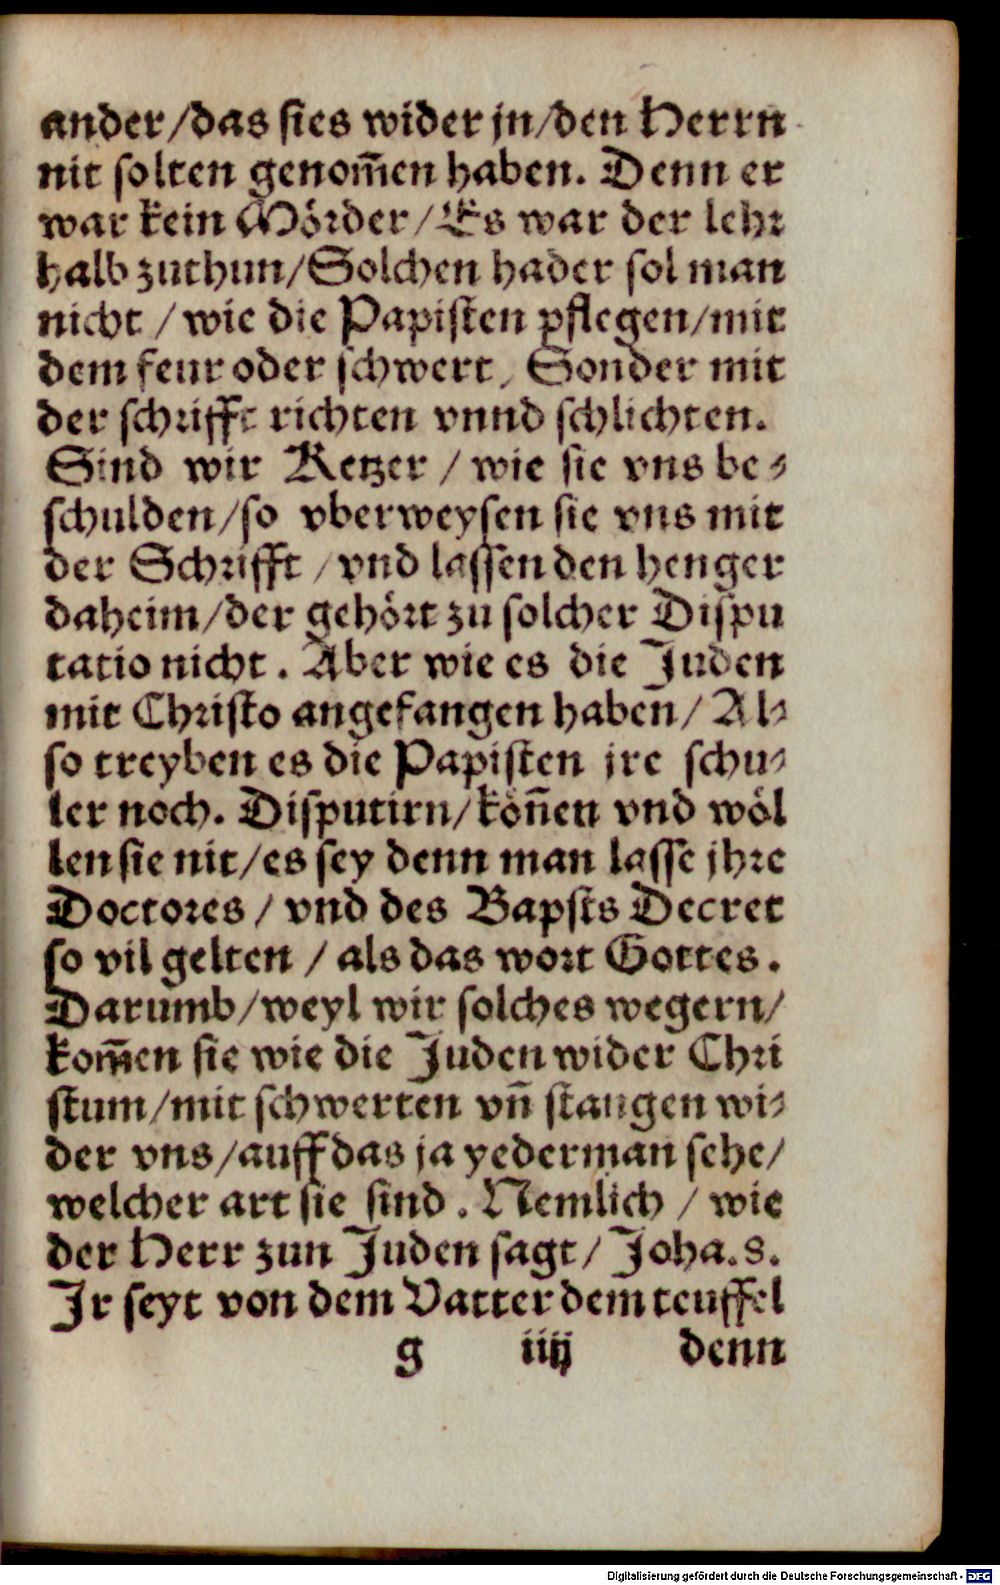 ander/das sies wider jn/den Herrn
nit solten genom̄en haben. Denn er
war kein Mörder/Es war der lehr
halb zuthun/Solchen hader sol man
nicht / wie die Papisten pflegen/mit
dem feur oder schwert/ Sonder mit
der schrifft richten vnnd schlichten.
Sind wir Ketzer / wie sie vns be-
schulden/so vberweysen sie vns mit
der Schrifft /vnd lassen den henger
daheim/der gehört zu solcher Dispu
tatio nicht. Aber wie es die Juden
mit Christo angefangen haben/ Al-
so treyben es die Papisten jre schu-
ler noch. Disputirn/kön̄en vnd wöl
len sie nit/es sey denn man lasse jhre
Doctores / vnd des Bapsts Decret
so vil gelten / als das wort Gottes.
Darumb/weyl wir solches wegern/
kom̄en sie wie die Juden wider Chri
stum/mit schwerten vn̄ stangen wi-
der vns/auff das ja yederman sehe/
welcher art sie sind. Nemlich / wie
der Herr zun Juden sagt/ Joha.8.
Jr seyt von dem Vatter dem teuffel
g iiij denn
Digitalisierung gefördert durch die Deutsche Forschungsgemeinschaft - DFG